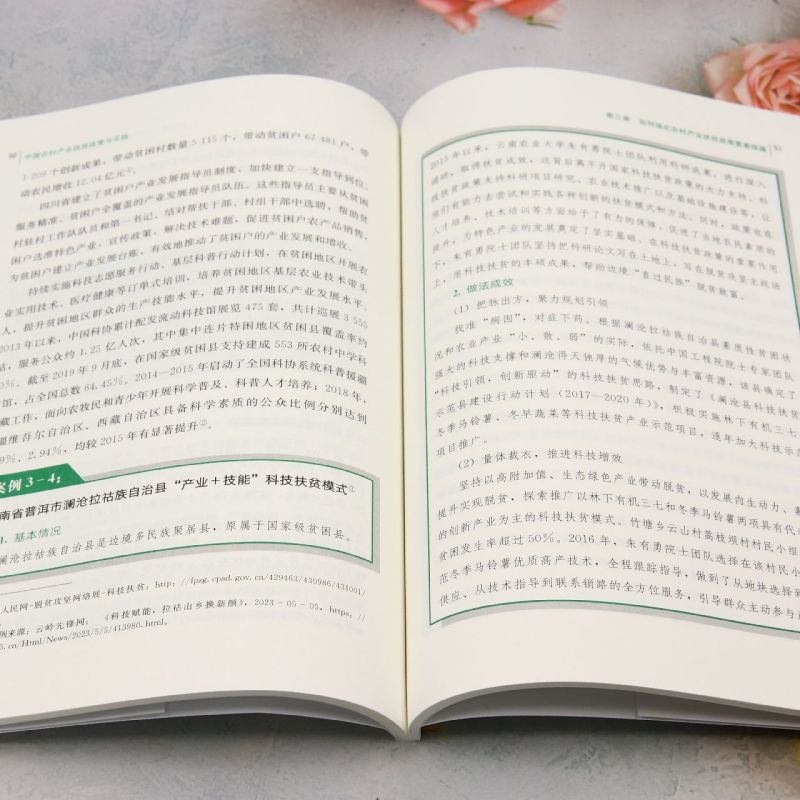 50 中国农村产业扶贫政策与实践
1 209 个创新成果，带动贫困村数量 5 115 个，带动贫困户 67 481 户，带
动农民增收 12.04 亿元①。
四川省建立了贫困户产业发展指导员制度，加快建立一支指导到位、
服务精准、贫困户全覆盖的产业发展指导员队伍。这些指导员主要从贫困
村驻村工作队队员和第一书记、结对帮扶干部、村组干部中选聘，帮助贫
困户选准特色产业、宣传政策、解决技术难题、促进贫困户农产品销售，
为贫困户建立产业发展台账，有效地推动了贫困户的产业发展和增收。
持续实施科技志愿服务行动、基层科普行动计划，在贫困地区开展农
业实用技术、医疗健康等订单式培训，培养贫困地区基层农业技术带头
人，提升贫困地区群众的生产技能水平，提升贫困地区产业发展水平。
2013 年以来，中国科协累计配发流动科技馆展览 475 套，共计巡展 3 555
站，服务公众约 1.25 亿人次，其中集中连片特困地区贫困县覆盖率约
0%。截至 2019 年 9 月底，在国家级贫困县支持建成 553 所农村中学科
馆，占全国总数 64.45%。2014—2015 年启动了全国科协系统科普援疆
藏工作，面向农牧民和青少年开展科学普及、科普人才培养；2018 年，
疆维吾尔自治区、西藏自治区具备科学素质的公众比例分别达到
9%、2.94%，均较 2015 年有显著提升②。
案例 3-4：
南省普洱市澜沧拉祜族自治县“产业＋技能”科技扶贫模式①
1. 基本情况
澜沧拉祜族自治县是边境多民族聚居县，原属于国家级贫困县。
人民网-脱贫攻坚网络展-科技扶贫：http://fpzg.cpad.gov.cn/429463/430986/431001/
例来源：云岭先锋网：《科技赋能，拉祜山乡换新颜》，2023-05-05，https://
5.cn/Html/News/2023/5/5/413980.html.
第三章 如何强化农村产业扶贫政策要素保障 51
2015 年以来，云南农业大学朱有勇院士团队利用科研成果，进行深入
调研，取得扶贫成效，这背后离不开国家科技扶贫政策的大力支持。科
技扶贫政策支持科研项目研究、农业技术推广以及基础设施建设等，让
他们有能力去尝试和实践各种创新的扶贫模式和方法。同时，政策也在
人才培养、技术培训等方面给予了有力的保障，促进了当地农民素质的
提升，为特色产业的发展奠定了坚实基础。在科技扶贫政策的重要作用
下，朱有勇院士团队坚持把科研论文写在土地上，写在脱贫攻坚主战场
上，用科技扶贫的丰硕成果，帮助边境“直过民族”脱贫致富。
2. 做法成效
（1）把脉出方，聚力规划引领
找准“病因”，对症下药。根据澜沧拉祜族自治县素质性贫困状
况和农业产业“小、散、弱”的实际，依托中国工程院院士专家团队
强大的科技支撑和澜沧得天独厚的气候优势与丰富资源，该县确定了
“科技引领，创新驱动”的科技扶贫思路，制定了《澜沧县科技扶贫
示范县建设行动计划（2017—2020 年）》，积极实施林下有机三七、
冬季马铃薯、冬早蔬菜等科技扶贫产业示范项目，逐年加大科技示范
项目推广。
（2）量体裁衣，推进科技增效
坚持以高附加值、生态绿色产业带动脱贫，以发展内生动力、素
提升实现脱贫，探索推广以林下有机三七和冬季马铃薯两项具有代表
的创新产业为主的科技扶贫模式。竹塘乡云山村蒿枝坝村村民小组
贫困发生率超过 50%。2016 年，朱有勇院士团队选择在该村民小
范冬季马铃薯优质高产技术，全程跟踪指导，做到了从地块选择到
供应、从技术指导到联系销路的全方位服务，引导群众主动参与